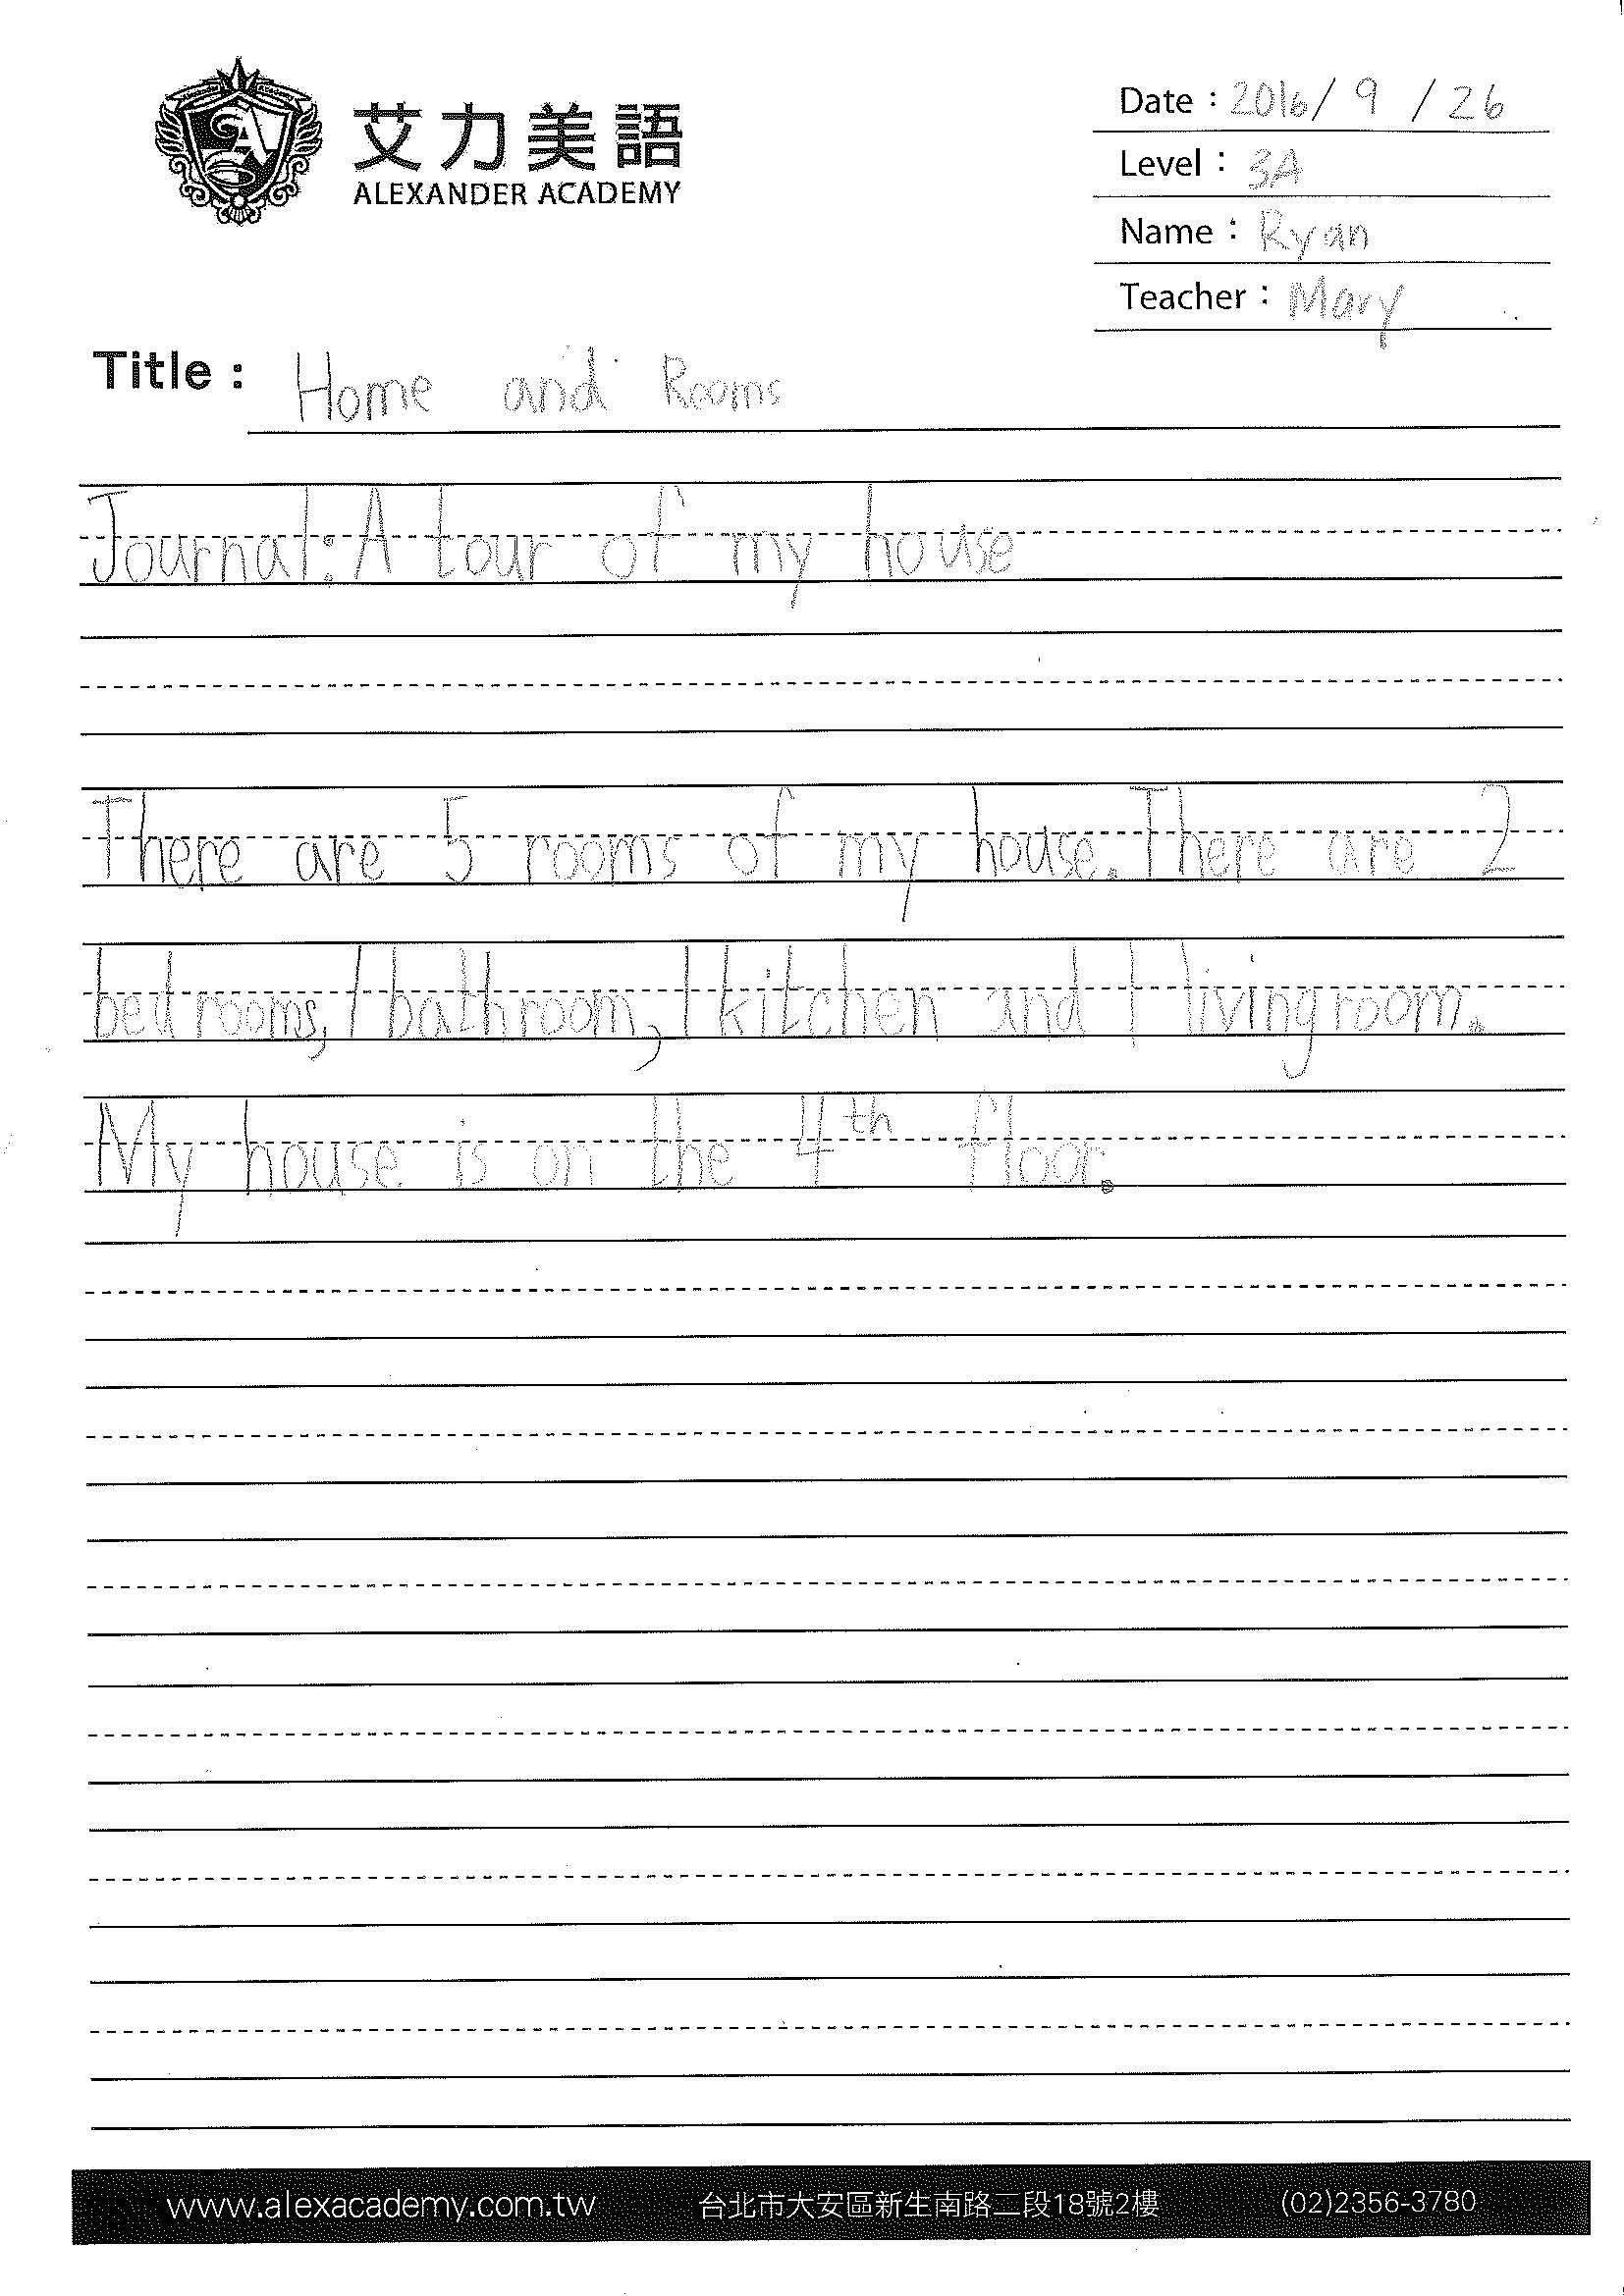 艾力美語
ALEXANDER ACADEMY
Date：2016/ 9 / 26
Level：3A
Name：Ryan
Teacher：Mary
Title： Home and Rooms
Journal: A tour of my house
There are 5 rooms of my house. There are 2
bedrooms, 1 bathroom, 1 kitchen and 1 livingroom.
My house is on the 4th floor.
www.alexacademy.com.tw 台北市大安區新生南路二段18號2樓 (02)2356-3780